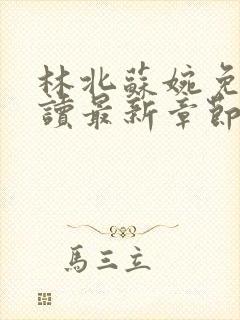 林北蘇婉免
讀最新章節
馬三立